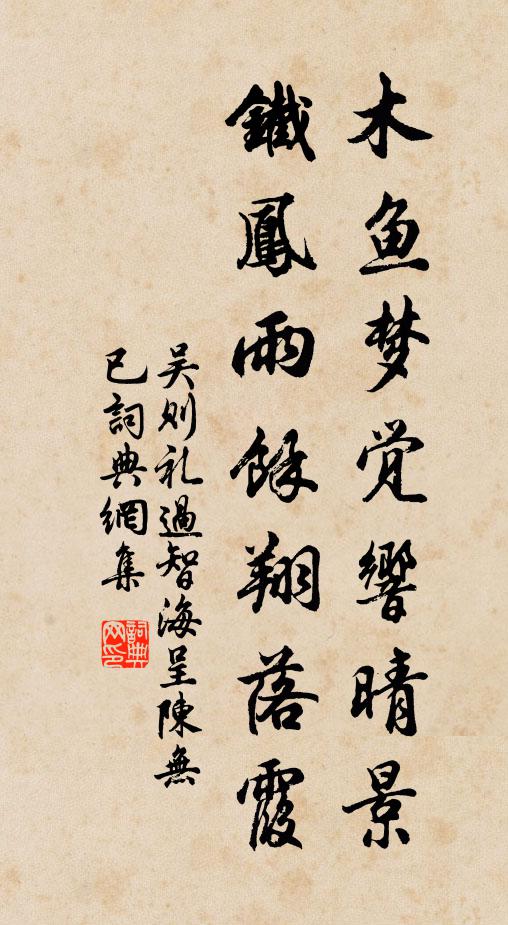 木鱼梦觉響晴景
鐵鳳雨餘翔落霞
吴则礼過智海呈陳無
已詞典網集
詞典
网印